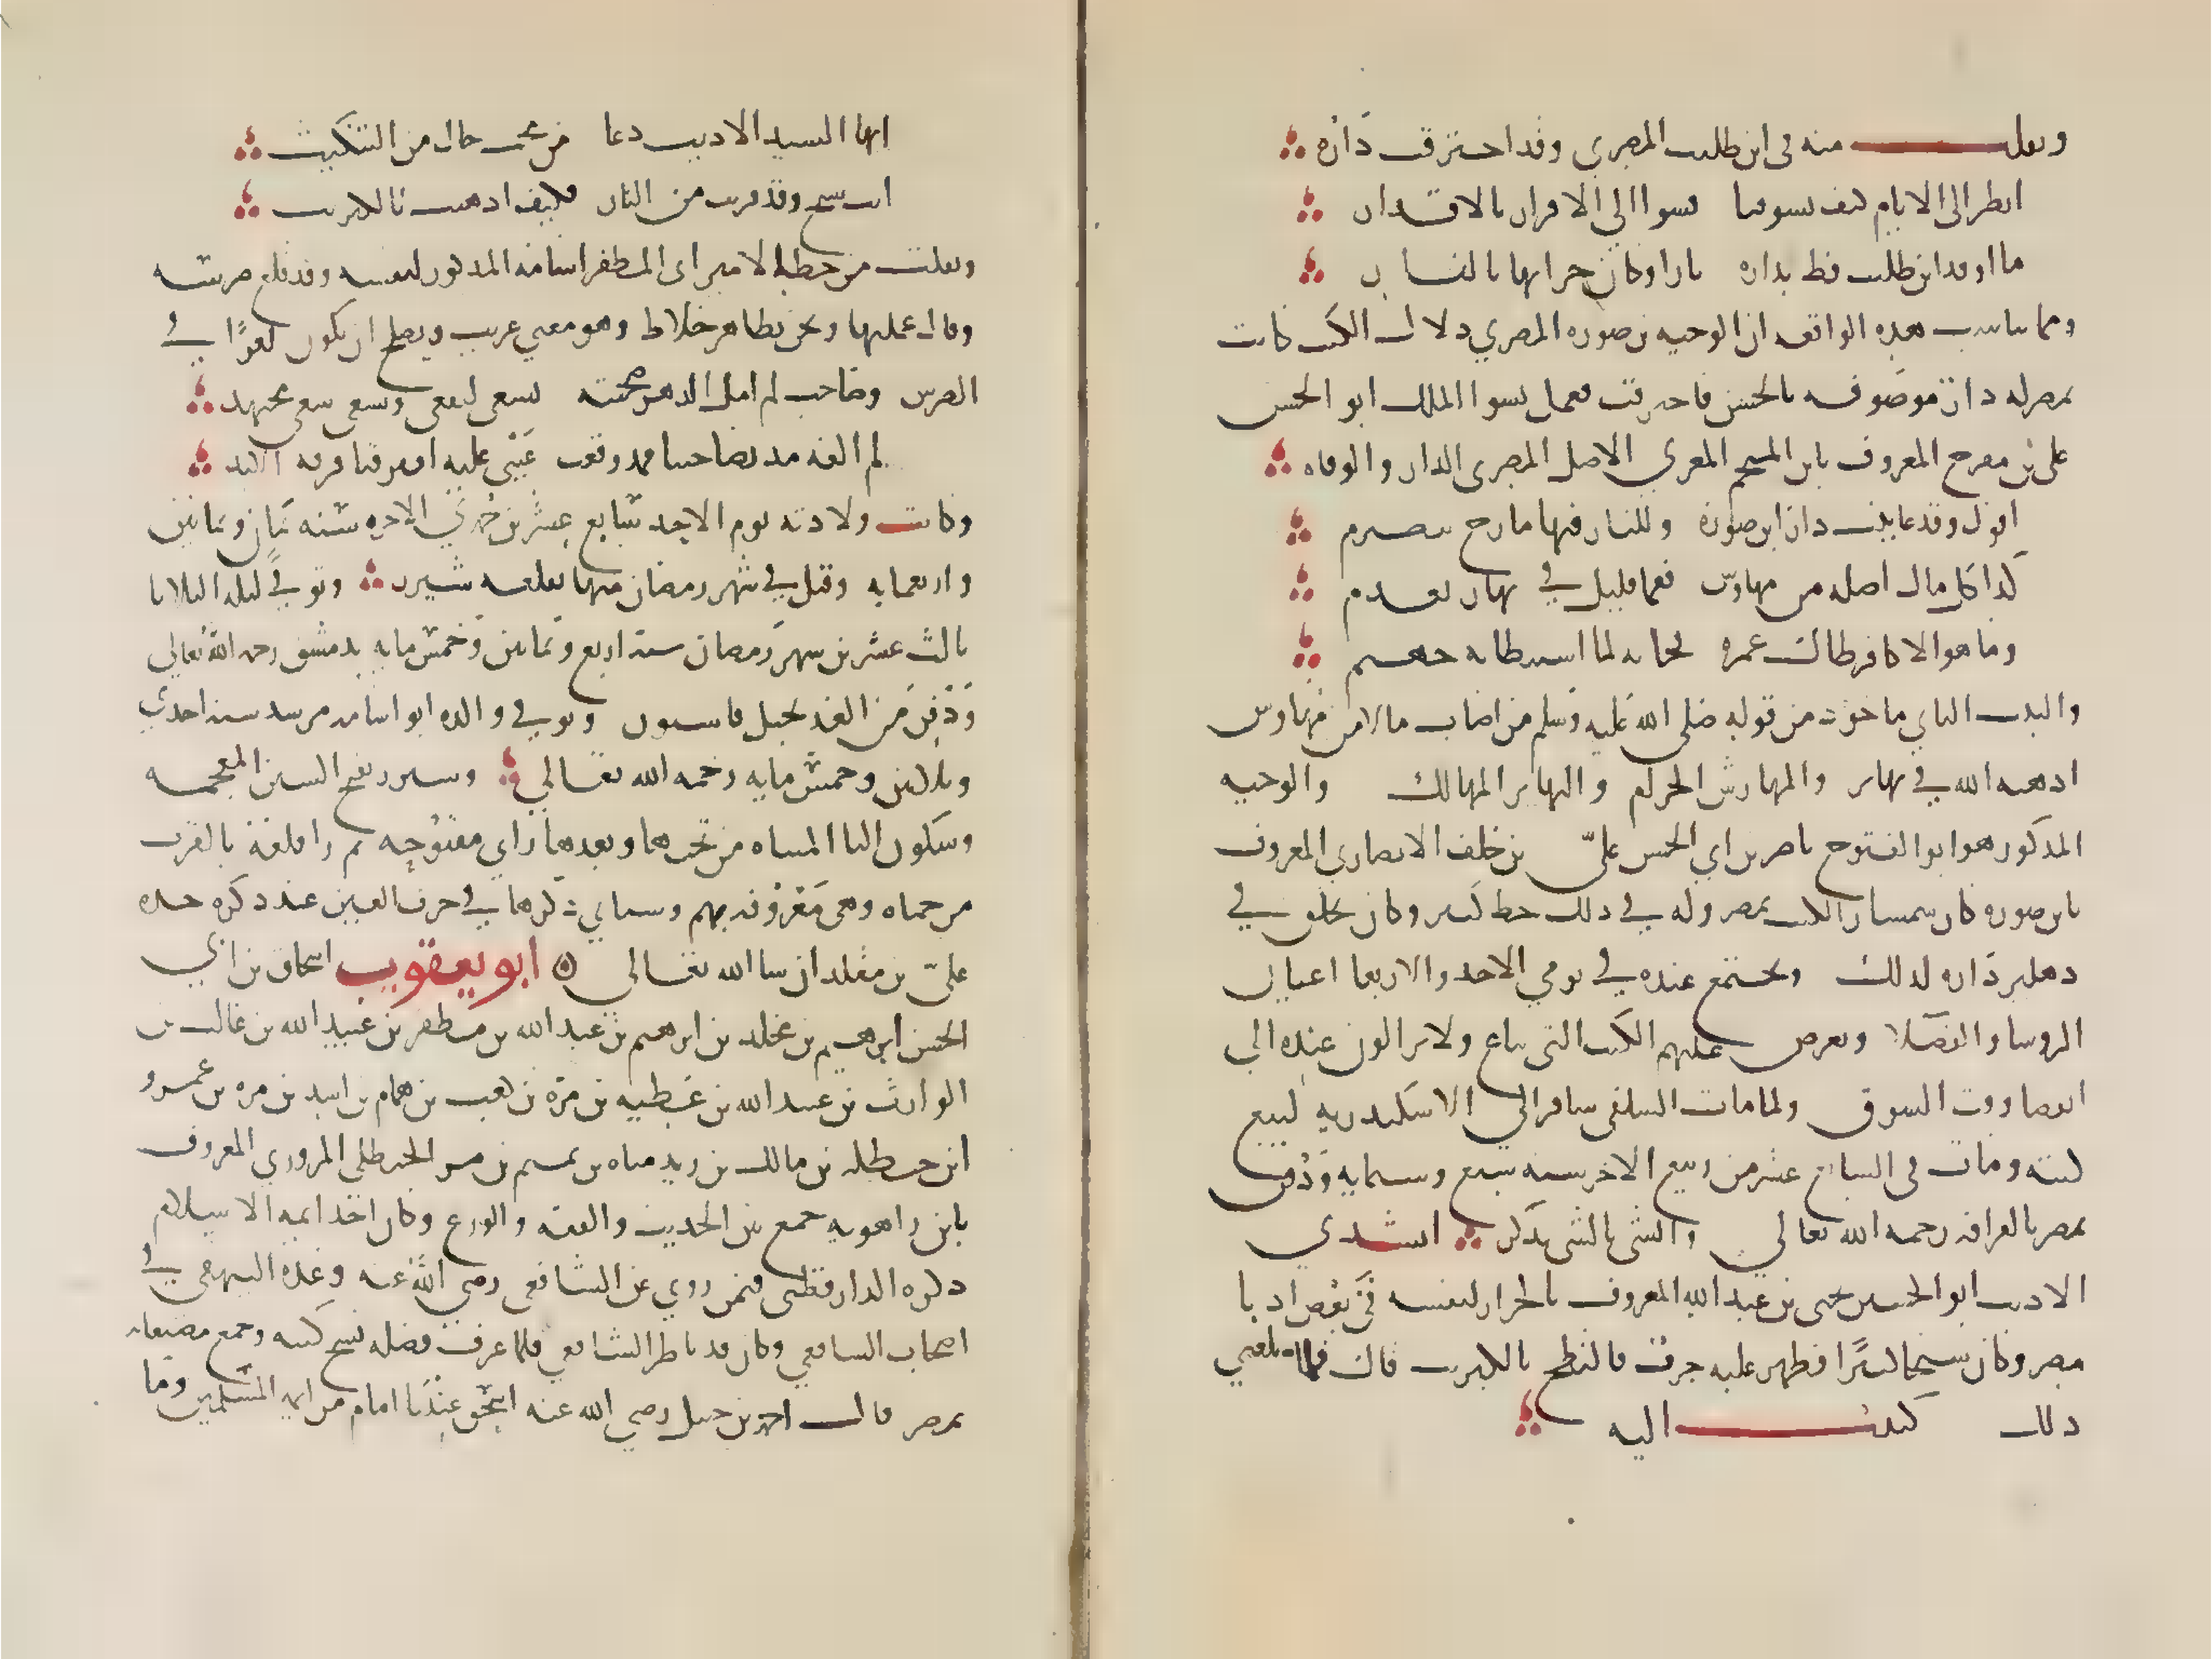 ونقلت منه في ابن طليب المصري وقد احترقت داره
انظر الى الايام كيف تسوقنا قسرا الى الاقرار بالاقدار
ما اوقد ابن طليب قط بداره نارا وكان خرابها بالنار
ومما يناسب هذه الواقعه ان الوجيه بن صوره المصري دلال الكتب كانت
بمصر له دار موصوفه بالحسن فاحترقت فعمل نسو الملك ابو الحسن
علي بن مفرج المعروف بابن المنجم المعري الاصل المصري الدار والوفاه
اقول وقد عاينت دار ابن صورة وللنار فيها مارج يتضرم
كذا كل مال اصله من مهاوش فعما قليل في نهابر يعدم
وما هو الا كافر طال عمره فجاءته لما استبطاته جهنم
والبيت الثاني ماخوذ من قوله صلى الله عليه وسلم من اصاب مالا من مهاوش
اذهبه الله في نهابر والمهاوش الحرام والنهابر المهالك والوجيه
المذكور هو ابو الفتوح ناصر بن ابي الحسن علي بن خلف الانصاري المعروف
بابن صوره كان سمسار الكتب بمصر وله في ذلك حظ كبير وكان يجلس في
دهليز داره لذلك ويجتمع عنده في يومي الاحد والاربعا اعيان
الروسا والفضلا ويعرض عليهم الكتب التي تباع ولا يزالون عنده الى
انقضا وقت السوق ولما مات السلفي سافر الى الاسكندريه لبيع
كتبه ومات في السابع عشر من ربيع الاخر سنه سبع وستمايه ودفن
بمصر بالقرافه رحمه الله تعالي والشي بالشي يذكر انشدني
الاديب ابو الحسين يحيى بن عبد الله المعروف بالجزار لنفسه في بعض ادبا
مصر وكان شيخا كبيرا فظهر عليه جرب فالتطخ بالكبريت قال فلما بلغني
ذلك كتبت اليه
ايها السيد الاديب دعا من محب خال من التنكيت
انت شيخ وقد قربت من النار فكيف ادهنت بالكبريت
ونقلت من خط الامير ابي المظفر اسامة المذكور لنفسه وقد قلع ضرسه
وقال عملتها ونحن بظاهر خلاط وهو معنى غريب ويصلح ان يكون لغزا في
الضرس وصاحب لم امل الدهر صحبته يسعى لنفعي ويسعى سعي مجتهد
لم القه مذ تصاحبنا فمذ وقعت عيني عليه افترقنا فرقه الابد
وكانت ولادته يوم الاحد سابع عشرين جمدي الاخره سنه ثمان وثمانين
واربعمايه وقيل في شهر رمضان منها بقلعه شيزر وتوفي ليله الثلاثا
ثالث عشرين شهر رمضان سنة اربع وثمانين وخمس مايه بدمشق رحمه الله تعالى
ودفن من الغد بجبل قاسيون وتوفي والده ابو اسامه مرشد سنة احدى
وثلاثين وخمس مايه رحمه الله تعالي وشيزر بفتح الشين المعجمه
وسكون اليا المثناه من تحتها وبعدها زاي مفتوحه ثم را قلعة بالقرب
من حماه وهي معروفه بهم وسياتي ذكرها في حرف العين عند ذكره جده
علي بن مقلد ان شا الله تعالي ابو يعقوب اسحاق بن ابي
الحسن ابرهيم بن مخلد بن ابرهيم بن عبد الله بن مطفر بن عبيد الله بن غالب بن
الوارث بن عبيد الله بن عطيه بن مرة بن كعب بن همام بن اسيد بن مره بن عمرو
ابن حنظله بن مالك بن زيد مناه بن تميم بن مر الحنظلي المروزي المعروف
بابن راهويه جمع بين الحديث والفقه والورع وكان احد ايمه الاسلام
ذكره الدارقطني فيمن روي عن الشافعي رضي الله عنه وعده البيهقي في
اصحاب الشافعي وكان قد ناظر الشافعي فلما عرف فضله نسخ كتبه وجمع مصنفاته
بمصر قال احمد بن حنبل رضي الله عنه اسحق عندنا امام من ايمه المسلمين وما